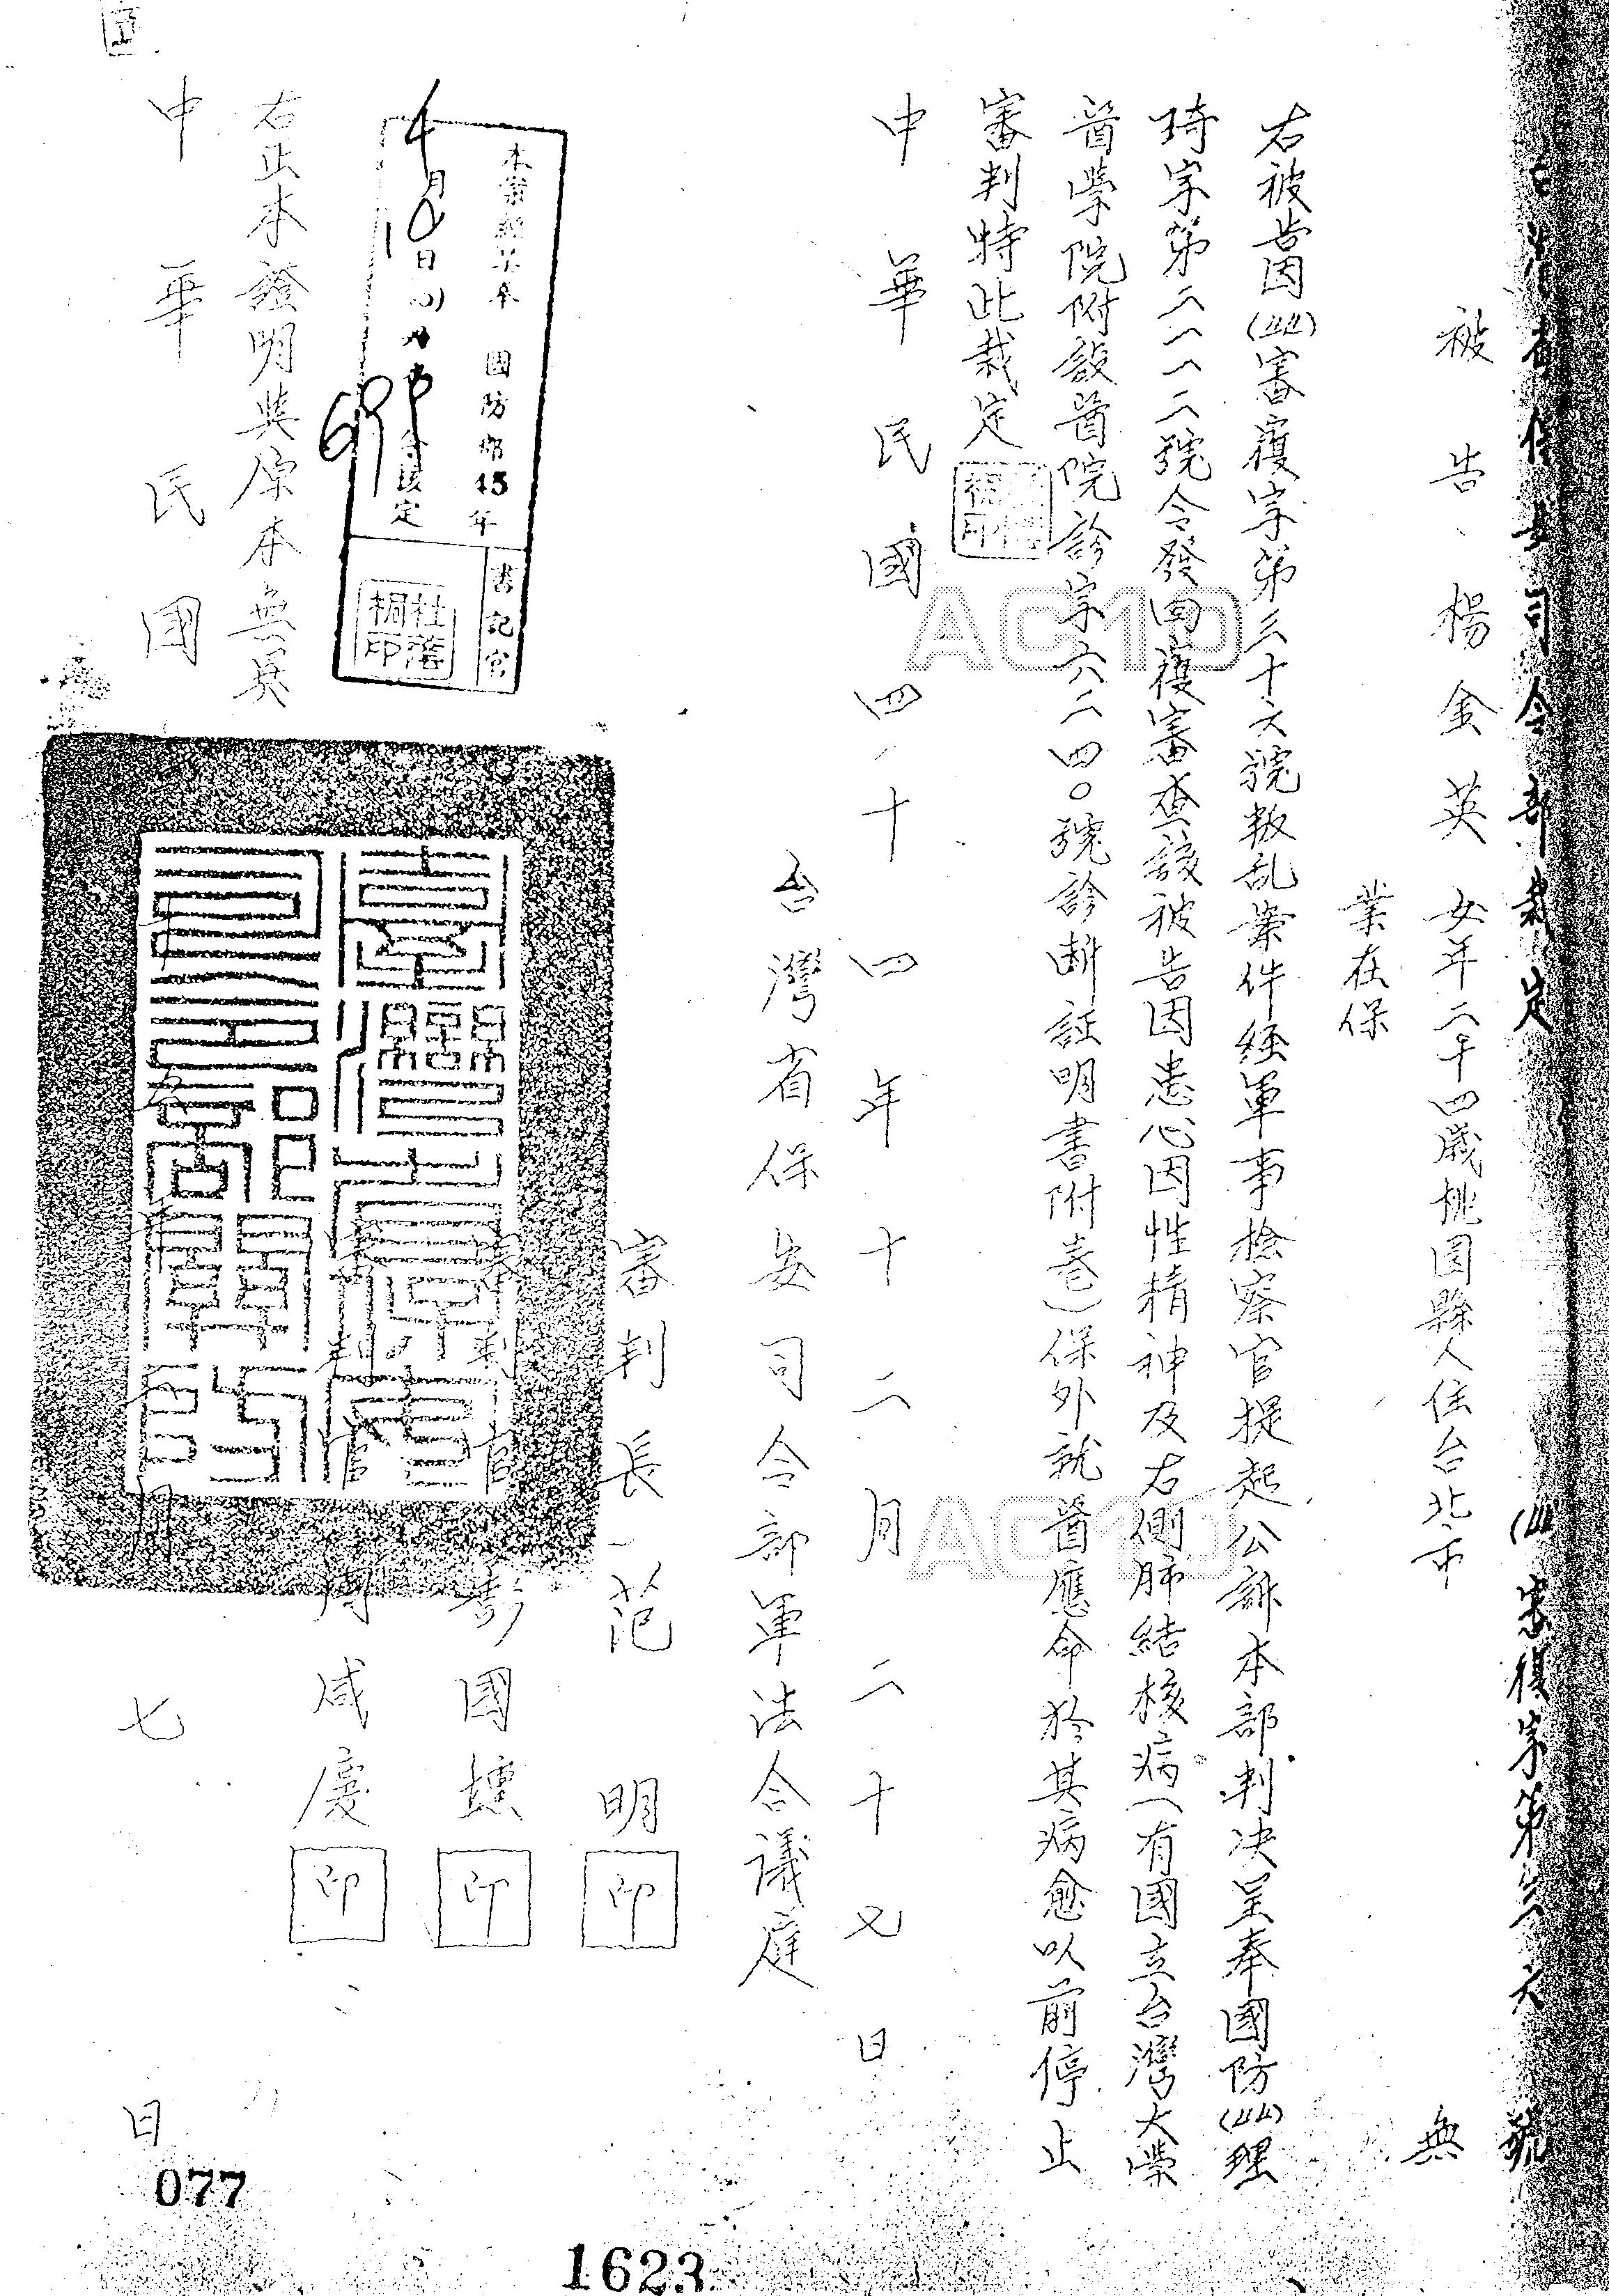 台灣省保安司令部裁定 (44)審複字第三六號
被告 楊金英 女年二十四歲桃園縣人住台北市 無
業在保
右被告因(44)審複字第三十六號叛乱案件經軍事檢察官提起公訴本部判決呈奉國防(44)理
琦字第二一一二號令發回複審查該被告因患心因性精神及右側肺結核病(有國立台灣大學
醫學院附設醫院診字六二四〇號診断証明書附卷)保外就醫應命於其病愈以前停止
審判特此裁定
中華民國四十四年十二月二十七日
台灣省保安司令部軍法合議庭
審判長 范明 印
審判官 彭國壎 印
審判官 周咸慶 印
本案經呈奉 國防部45年
4月10日
令核定
書記官
右正本證明與原本無異
中華民國 年 月 七 日
077
1623
ACMD
ACMD